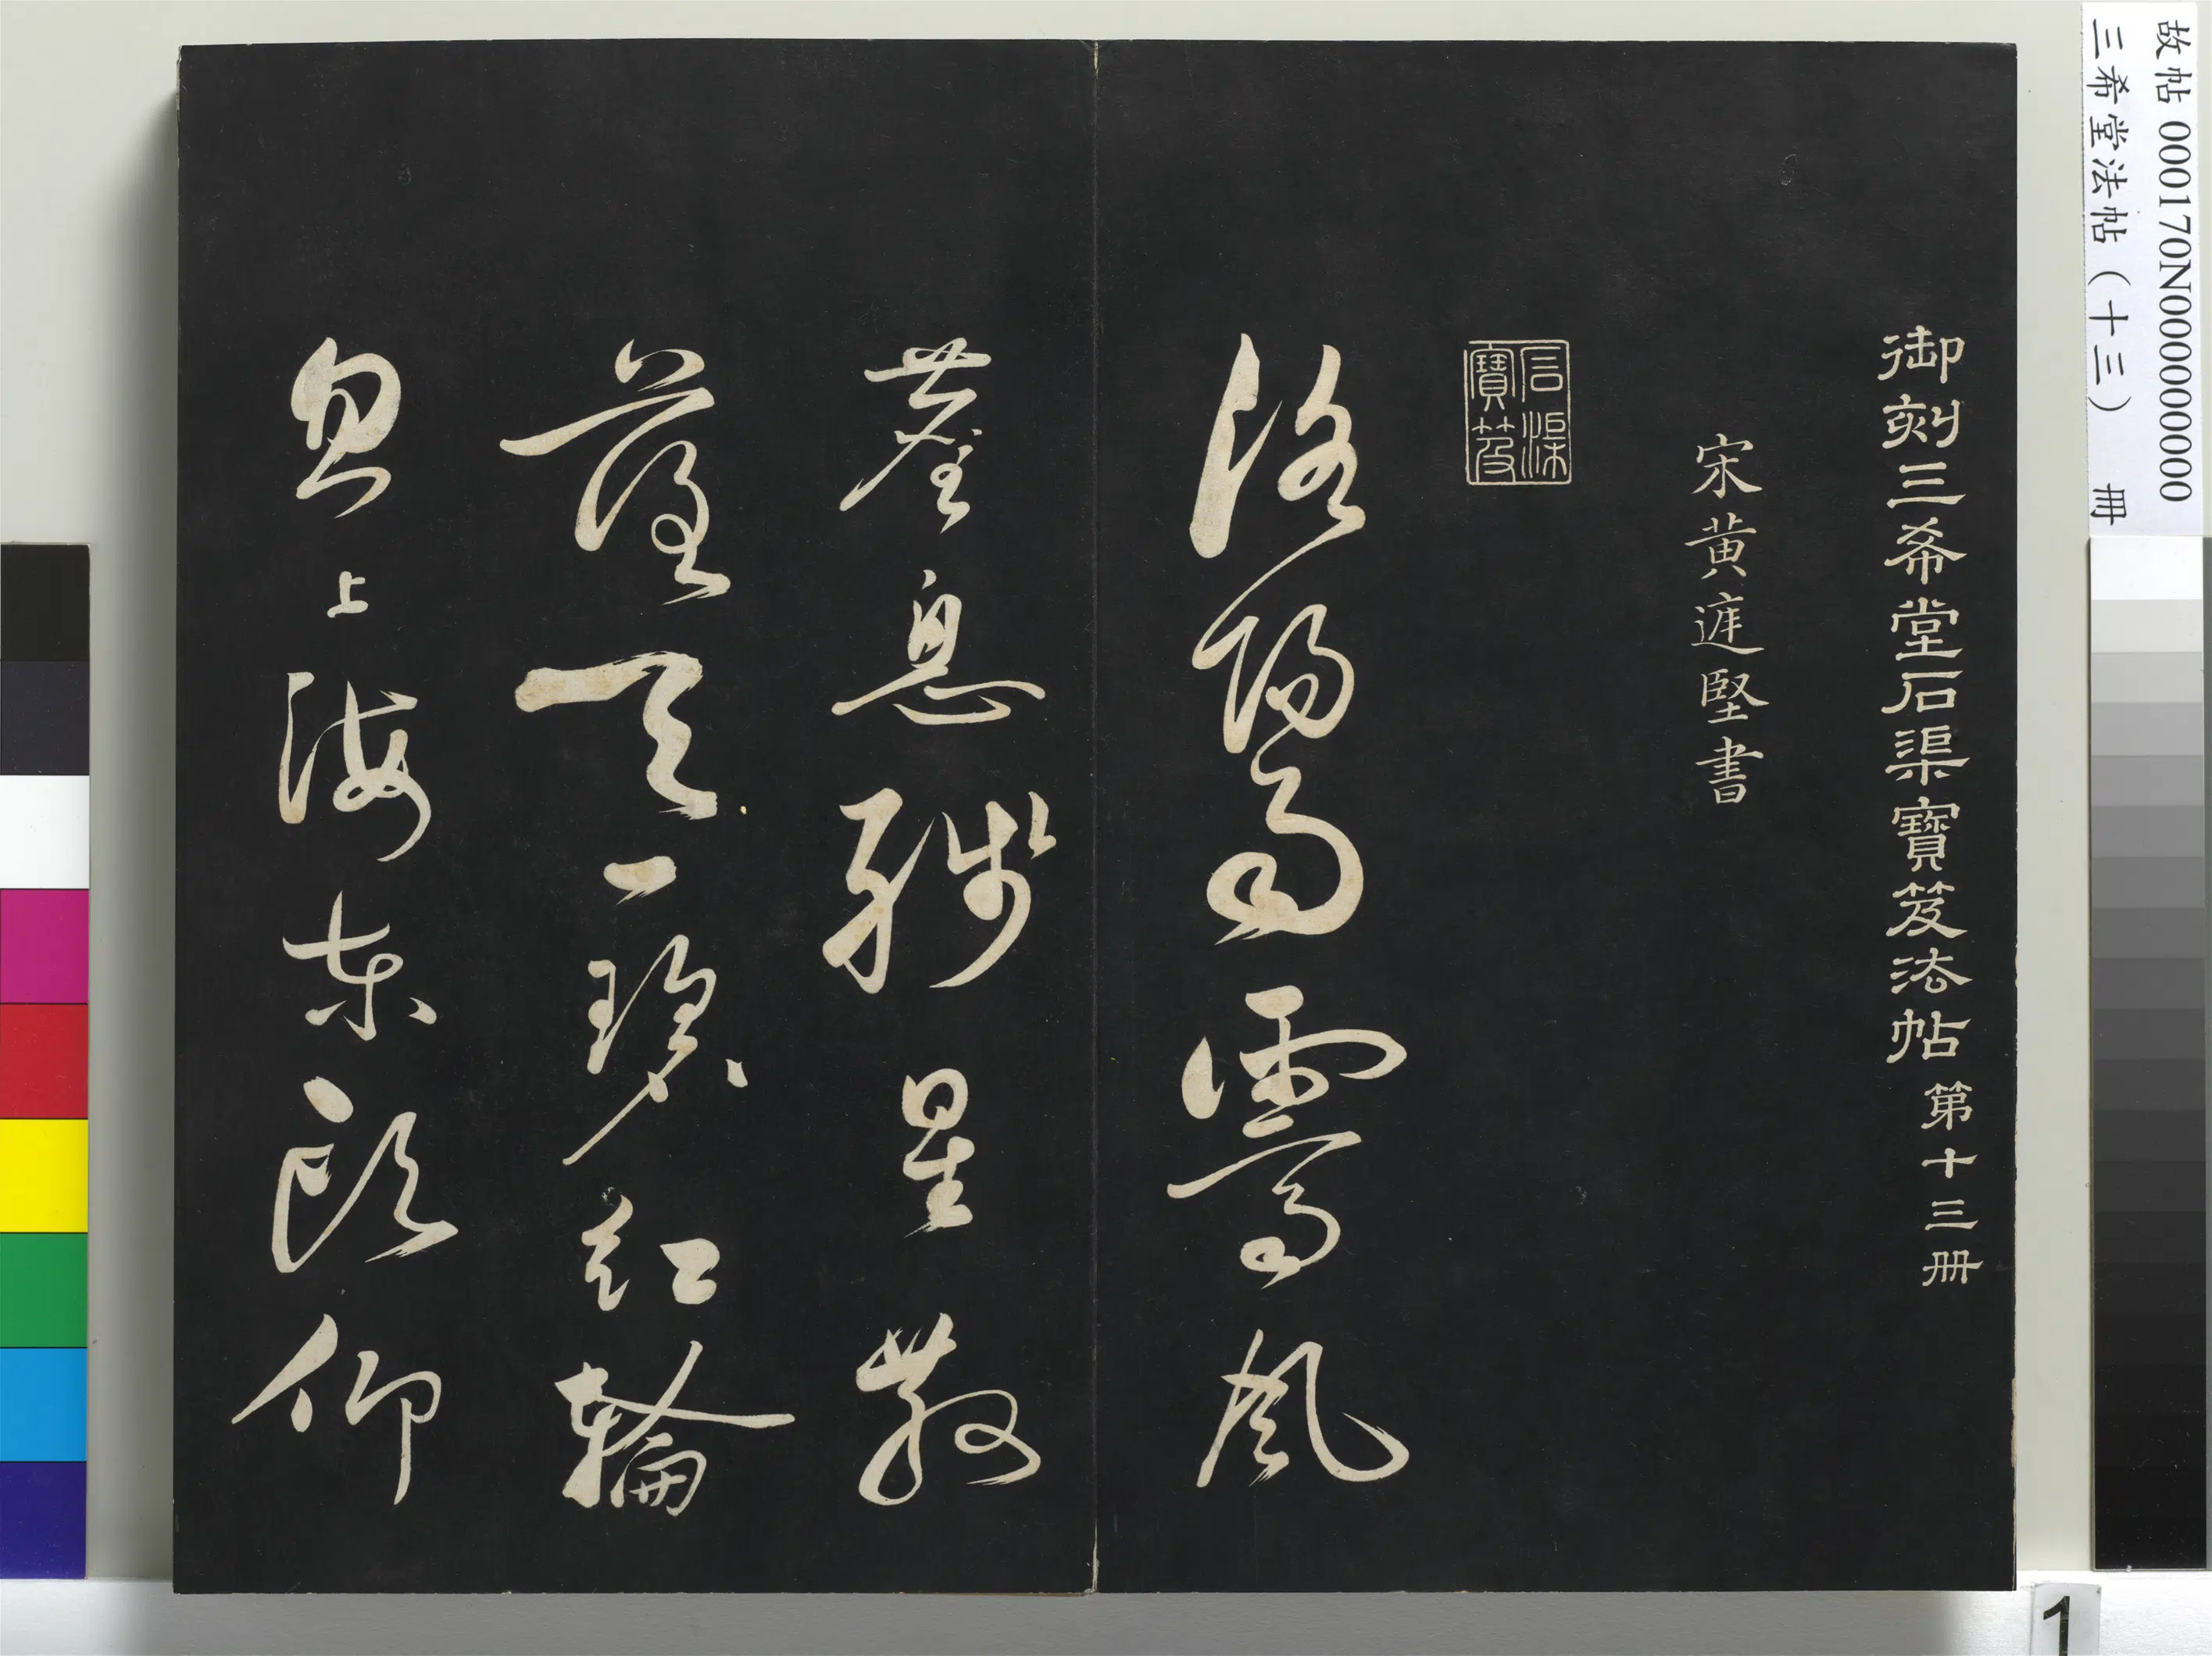 故帖 000170N000000000
三希堂法帖（十三） 冊
御刻三希堂石渠寶笈法帖 第十三冊
宋黃庭堅書
石渠寶笈
洛陽雨霽風
塵息殘星散
落天一碧紅輪
忽上海東頭仰
1